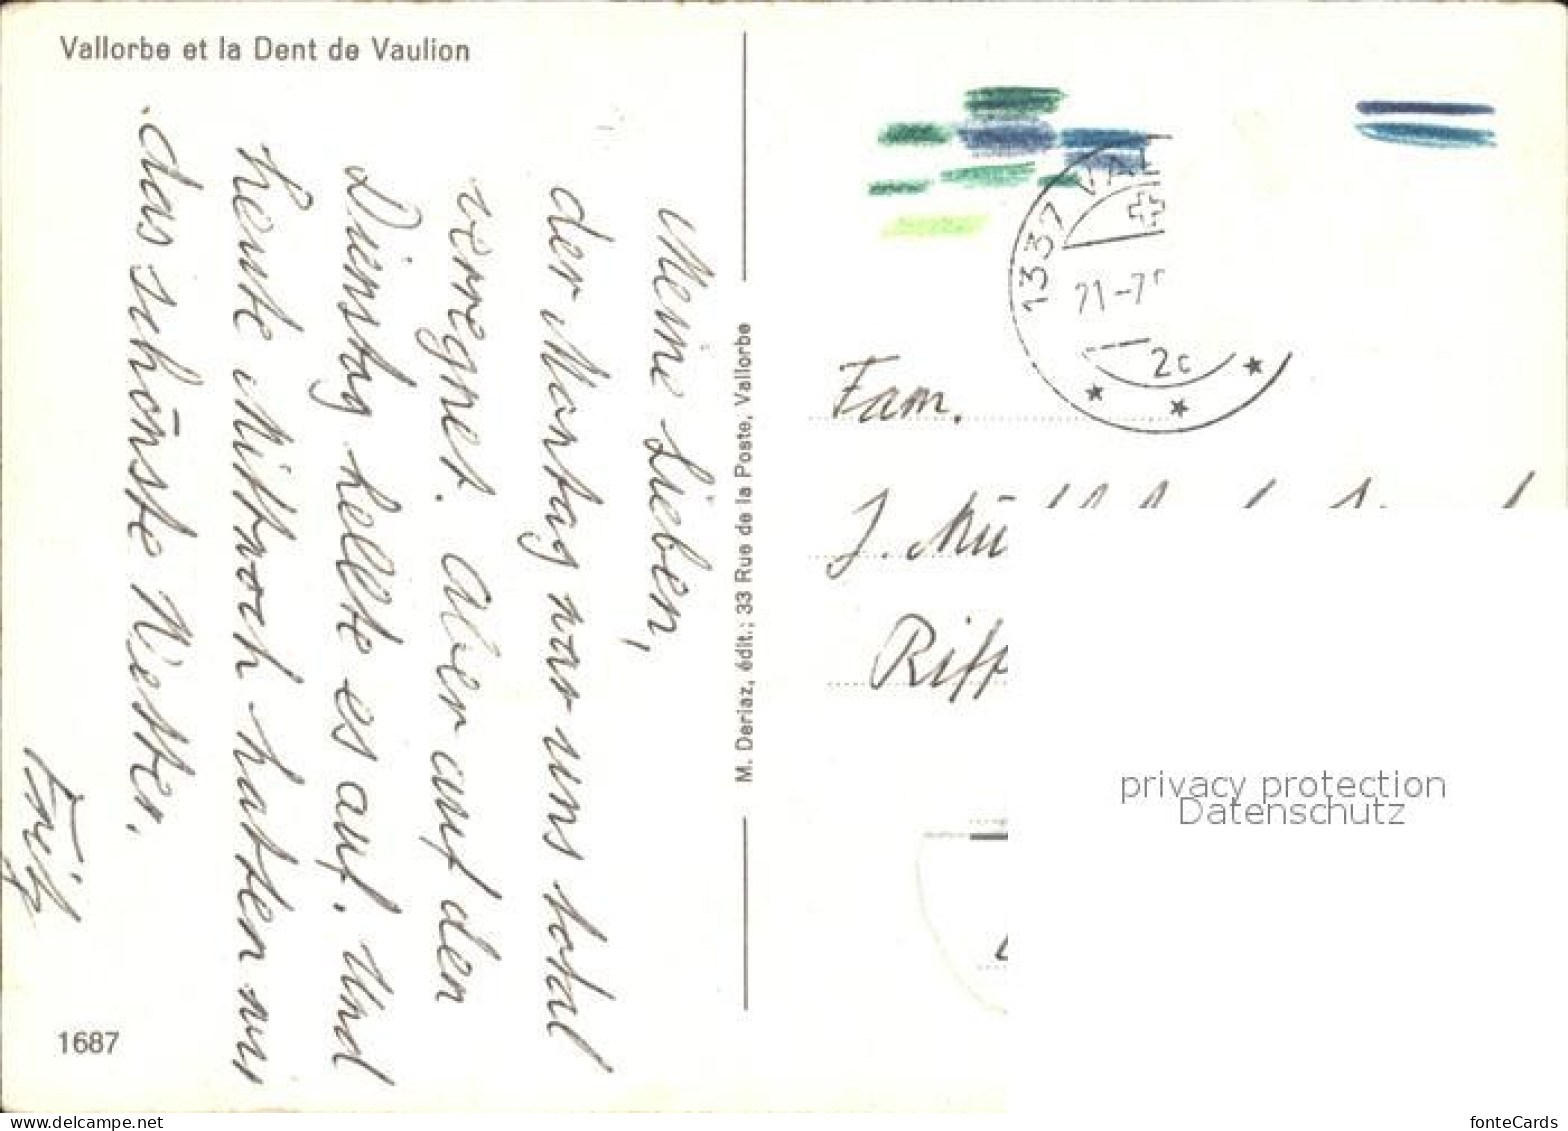 Vallorbe et la Dent de Vaulion
Meine Lieben,
der Montag war uns total
verregnet. Aber auf den
Dienstag hellte es auf. Und
heute Mittwoch hatten wir
das schönste Wetter.
Fritz
1687
M. Deriaz, édit.; 33 Rue de la Poste, Vallorbe
1337
21-7
2c
Fam.
J. Mü
Riff
privacy protection
Datenschutz
fonteCards